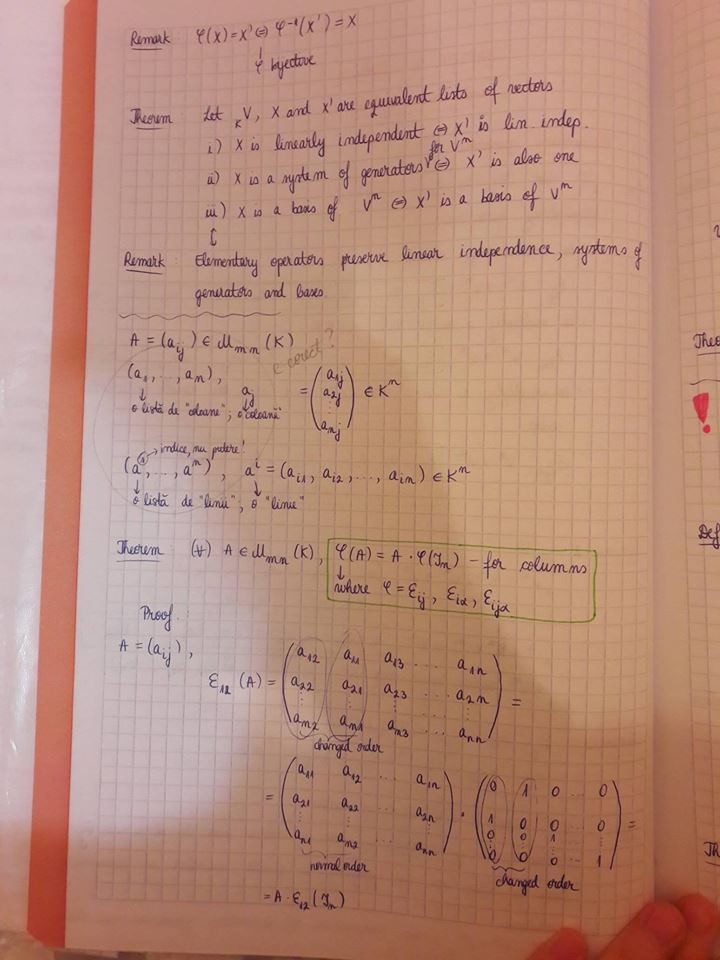 Remark: φ(X) = X' ⇔ φ⁻¹(X') = X
↓
φ bijective
Theorem: Let ₖV, X and X' are equivalent lists of vectors
i) X is linearly independent ⇔ X' is lin. indep.
ii) X is a system of generators for Vⁿ ⇔ X' is also one
iii) X is a basis of Vⁿ ⇔ X' is a basis of Vⁿ
Remark: Elementary operators preserve linear independence, systems of
generators and bases
A = (aᵢⱼ) ∈ Mₘₙ(K)
e corect?
(a₁, ..., aₙ), aⱼ = (a₁ⱼ a₂ⱼ ⋮ aₙⱼ) ∈ Kⁿ
↓ ↓
o listă de "coloane"; o "coloană"
→ indice, nu putere!
(a¹, ..., aⁿ), aⁱ = (aᵢ₁, aᵢ₂, ..., aᵢₙ) ∈ Kⁿ
↓ ↓
o listă de "linii", o "linie"
Theorem: (∀) A ∈ Mₘₙ(K), φ(A) = A · φ(Iₙ) – for columns
↓
where φ = εᵢⱼ, εᵢα, εᵢⱼα
Proof:
A = (aᵢⱼ),
a₁₂ a₁₁ a₁₃ ... a₁ₙ
ε₁₂(A) = a₂₂ a₂₁ a₂₃ ... a₂ₙ =
⋮ ⋮ ⋮ ⋮
aₙ₂ aₙ₁ aₙ₃ ... aₙₙ
changed order
a₁₁ a₁₂ ... a₁ₙ 0 1 0 ... 0
= a₂₁ a₂₂ ... a₂ₙ · 1 0 0 ... 0 =
⋮ ⋮ ⋮ 0 0 1
aₙ₁ aₙ₂ ... aₙₙ 0 0 0 ... 1
normal order changed order
= A · ε₁₂(Iₙ)
Theo
!
Def
Th